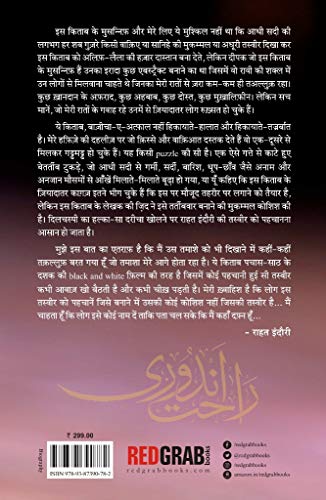 इस किताब के मुसन्निफ़ और मेरे लिए ये मुश्किल नहीं था कि आधी सदी की
लगभग हर शब गुज़रे किसी वाक़िए या सानिहे की मुकम्मल या अधूरी तस्वीर दिखा कर
इस किताब को अलिफ़-लैला की हज़ार दास्तान बना देते, लेकिन दीपक जो इस किताब
के मुसन्निफ़ हैं उनका इरादा कुछ एबस्ट्रैक्ट बनाने का था जिसमें वो रावी की शक्ल में
उन लोगों से मिलवाना चाहते थे जिनका मेरी रातों से ज़रा कम-कम ही तअल्लुक़ रहा।
कुछ ख़ानदान के अफराद, कुछ अहबाब, कुछ दोस्त, कुछ मुख़ालिफ़ीन। लेकिन सच
मानें, जो मेरी रातों के गवाह रहे उनमें से ज़ियादातर लोग रुख़्सत हो चुके हैं।
ये किताब, बाज़ीचा-ए-अत्फाल नहीं हिकायाते-हालात और हिकायाते-तज्रबात
है। मेरे हाफ़िज़े की दहलीज़ पर जो क़िस्से और वाक़िआत दस्तक देते हैं वो एक-दूसरे से
मिलकर गड्डमड्ड हो चुके हैं। यह किसी puzzle की सी है। एक ऐसे गत्ते से काटे हुए
बेतर्तीब टुकड़े, जो आधी सदी से गर्मी, सर्दी, बारिश, धूप-छाँव जैसे अनाम और
अनजान मौसमों से आँखें मिलाते-मिलाते बूढ़ा हो गया, या यूँ कहिए कि इस किताब के
ज़ियादातर काग़ज़ इतने भीग चुके हैं कि इस पर मौजूद तहरीर पर लगाने को तैयार है,
लेकिन इस किताब के लेखक की ज़िद ने इसे तर्तीबवार बनाने की मुकम्मल कोशिश की
है। दिलचस्पी का हल्का-सा दरीचा खोलने पर राहत इंदौरी की तस्वीर को पहचानना
आसान हो जाता है।
मुझे इस बात का एतराफ़ है कि मैं उस तमाशे को भी दिखाने में कहीं-कहीं
तकल्लुफ़ बरत गया हूँ जो तमाशा मेरे आगे होता रहा है। ये किताब पचास-साठ के
दशक की black and white फ़िल्म की तरह है जिसमें कोई पहचानी हुई सी तस्वीर
कभी आवाज़ खो बैठती है और कभी चीख़ पड़ती है। मेरी ख़्वाहिश है कि लोग इस
तस्वीर को पहचानें जिसे बनाने में उसकी कोई कोशिश नहीं जिसकी तस्वीर है... मैं
चाहता हूँ कि लोग इसे कोई नाम दें ताकि पता चल सके कि मैं कहाँ दफ़्न हूँ...
- राहत इंदौरी
راحت اندوری
₹ 299.00
Biography
ISBN 978-93-87390-78-2
REDGRAB
books
redgrabbooks.com
/redgrabbooks
@redgrabbooks
/redgrabbooks
/redgrabbooks